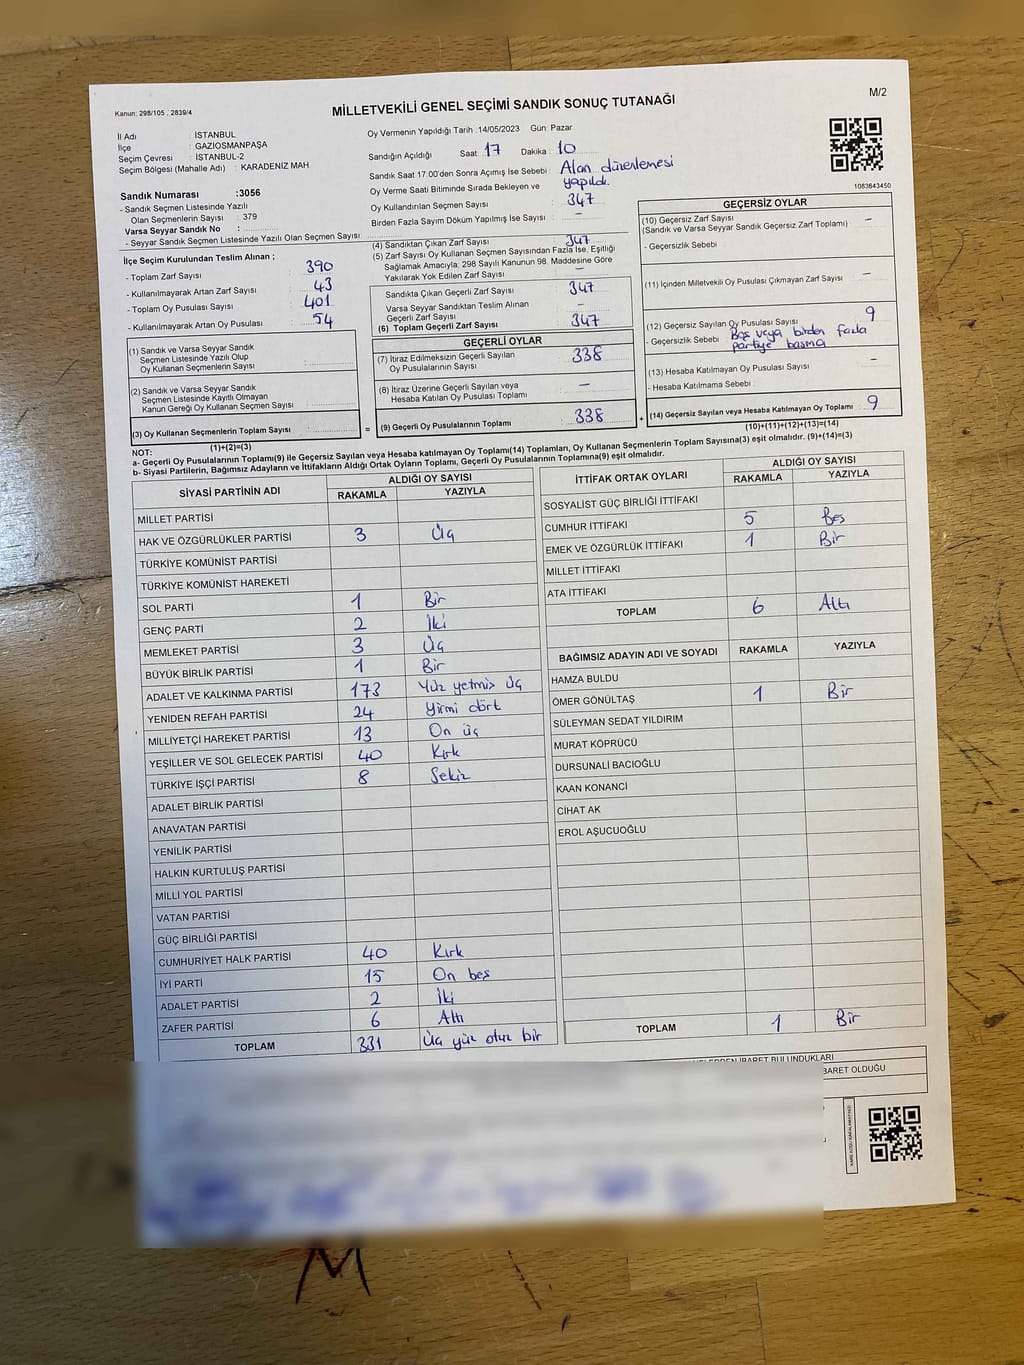 M/2
Kanun: 298/105 ; 2839/4
MİLLETVEKİLİ GENEL SEÇİMİ SANDIK SONUÇ TUTANAĞI
İl Adı : İSTANBUL
İlçe : GAZİOSMANPAŞA
Seçim Çevresi : İSTANBUL-2
Seçim Bölgesi (Mahalle Adı) : KARADENİZ MAH.
Sandık Numarası :3056
- Sandık Seçmen Listesinde Yazılı
Olan Seçmenlerin Sayısı : 379
Varsa Seyyar Sandık No :
- Seyyar Sandık Seçmen Listesinde Yazılı Olan Seçmen Sayısı:
İlçe Seçim Kurulundan Teslim Alınan ;
- Toplam Zarf Sayısı : 390
- Kullanılmayarak Artan Zarf Sayısı : 43
- Toplam Oy Pusulası Sayısı : 401
- Kullanılmayarak Artan Oy Pusulası : 54
(1) Sandık ve Varsa Seyyar Sandık
Seçmen Listesinde Yazılı Olup
Oy Kullanan Seçmenlerin Sayısı :
(2) Sandık ve Varsa Seyyar Sandık
Seçmen Listesinde Kayıtlı Olmayan
Kanun Gereği Oy Kullanan Seçmen Sayısı :
(3) Oy Kullanan Seçmenlerin Toplam Sayısı :
(1)+(2)=(3)
Oy Vermenin Yapıldığı Tarih :14/05/2023 Gün: Pazar
Sandığın Açıldığı Saat: 17 Dakika : 10
Sandık Saat 17.00'den Sonra Açımış İse Sebebi : Alan düzenlemesi
yapıldı.
Oy Verme Saati Bitiminde Sırada Bekleyen ve
Oy Kullandırılan Seçmen Sayısı : 347
Birden Fazla Sayım Döküm Yapılmış İse Sayısı : -
(4) Sandıktan Çıkan Zarf Sayısı : 347
(5) Zarf Sayısı Oy Kullanan Seçmen Sayısından Fazla İse, Eşitliği
Sağlamak Amacıyla; 298 Sayılı Kanunun 98. Maddesine Göre
Yakılarak Yok Edilen Zarf Sayısı : -
Sandıkta Çıkan Geçerli Zarf Sayısı : 347
Varsa Seyyar Sandıktan Teslim Alınan
Geçerli Zarf Sayısı : -
(6) Toplam Geçerli Zarf Sayısı : 347
GEÇERLİ OYLAR
(7) İtiraz Edilmeksizin Geçerli Sayılan
Oy Pusulalarının Sayısı : 338
(8) İtiraz Üzerine Geçerli Sayılan veya
Hesaba Katılan Oy Pusulası Toplamı : -
= (9) Geçerli Oy Pusulalarının Toplamı : 338 +
1083643450
GEÇERSİZ OYLAR
(10) Geçersiz Zarf Sayısı : -
(Sandık ve Varsa Seyyar Sandık Geçersiz Zarf Toplamı)
- Geçersizlik Sebebi :
(11) İçinden Milletvekili Oy Pusulası Çıkmayan Zarf Sayısı : -
(12) Geçersiz Sayılan Oy Pusulası Sayısı : 9
- Geçersizlik Sebebi : Boş veya birden fazla
partiye basma
(13) Hesaba Katılmayan Oy Pusulası Sayısı : -
- Hesaba Katılmama Sebebi :
(14) Geçersiz Sayılan veya Hesaba Katılmayan Oy Toplamı : 9
(10)+(11)+(12)+(13)=(14)
NOT:
a- Geçerli Oy Pusulalarının Toplamı(9) ile Geçersiz Sayılan veya Hesaba katılmayan Oy Toplamı(14) Toplamları, Oy Kullanan Seçmenlerin Toplam Sayısına(3) eşit olmalıdır. (9)+(14)=(3)
b- Siyasi Partilerin, Bağımsız Adayların ve İttifakların Aldığı Ortak Oyların Toplamı, Geçerli Oy Pusulalarının Toplamına(9) eşit olmalıdır.
SİYASİ PARTİNİN ADI ALDIĞI OY SAYISI
RAKAMLA YAZIYLA
MİLLET PARTİSİ
HAK VE ÖZGÜRLÜKLER PARTİSİ 3 Üç
TÜRKİYE KOMÜNİST PARTİSİ
TÜRKİYE KOMÜNİST HAREKETİ
SOL PARTİ 1 Bir
GENÇ PARTİ 2 İki
MEMLEKET PARTİSİ 3 Üç
BÜYÜK BİRLİK PARTİSİ 1 Bir
ADALET VE KALKINMA PARTİSİ 173 Yüz yetmiş üç
YENİDEN REFAH PARTİSİ 24 Yirmi dört
MİLLİYETÇİ HAREKET PARTİSİ 13 On üç
YEŞİLLER VE SOL GELECEK PARTİSİ 40 Kırk
TÜRKİYE İŞÇİ PARTİSİ 8 Sekiz
ADALET BİRLİK PARTİSİ
ANAVATAN PARTİSİ
YENİLİK PARTİSİ
HALKIN KURTULUŞ PARTİSİ
MİLLİ YOL PARTİSİ
VATAN PARTİSİ
GÜÇ BİRLİĞİ PARTİSİ
CUMHURİYET HALK PARTİSİ 40 Kırk
İYİ PARTİ 15 On beş
ADALET PARTİSİ 2 İki
ZAFER PARTİSİ 6 Altı
TOPLAM 331 Üç yüz otuz bir
İTTİFAK ORTAK OYLARI ALDIĞI OY SAYISI
RAKAMLA YAZIYLA
SOSYALİST GÜÇ BİRLİĞİ İTTİFAKI
CUMHUR İTTİFAKI 5 Beş
EMEK VE ÖZGÜRLÜK İTTİFAKI 1 Bir
MİLLET İTTİFAKI
ATA İTTİFAKI
TOPLAM 6 Altı
BAĞIMSIZ ADAYIN ADI VE SOYADI RAKAMLA YAZIYLA
HAMZA BULDU
ÖMER GÖNÜLTAŞ 1 Bir
SÜLEYMAN SEDAT YILDIRIM
MURAT KÖPRÜCÜ
DURSUNALİ BACIOĞLU
KAAN KONANCİ
CİHAT AK
EROL AŞUCUOĞLU
TOPLAM 1 Bir
İBARET BULUNDUKLARI
BARET OLDUĞU
M